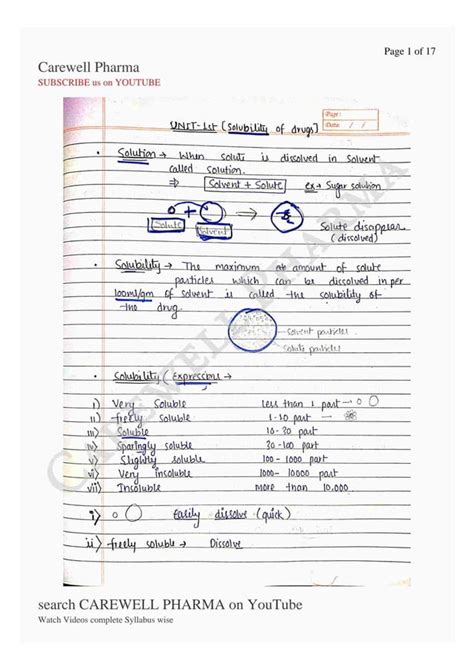 Page 1 of 17
Carewell Pharma
SUBSCRIBE us on YOUTUBE
Page:
Date: / /
UNIT-1st [Solubility of drugs]
• Solution → When solute is dissolved in solvent
called solution.
⇒ Solvent + Solute ex → Sugar solution
+ ⇒
Solute Solvent
Solute disappear
(dissolved)
• Solubility → The maximum amount of solute
particles which can be dissolved in per
100ml/gm of solvent is called the solubility of
the drug.
Solvent particles
Solute particles
• Solubility (Expressions →
i) Very Soluble less than 1 part → o O
ii) freely Soluble 1-10 part →
iii) Soluble 10-30 part
iv) Sparingly soluble 30-100 part
v) Slightly soluble 100-1000 part
vi) Very insoluble 1000-10000 part
vii) Insoluble more than 10,000
i) o O Easily dissolve (quick)
ii) freely soluble → Dissolve
CAREWELL PHARMA
search CAREWELL PHARMA on YouTube
Watch Videos complete Syllabus wise